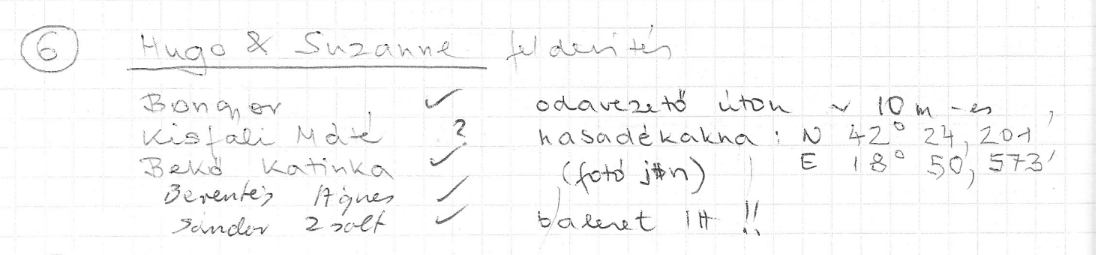 6 Hugo & Suzanne felderítés
Bongyor ✓ odavezető úton ~ 10 m-es
Kisfali Máté ? hasadékakna: N 42° 24,201'
Bekő Katinka ✓ (fotó jön) E 18° 50,573'
Berentés Ágnes ✓
Sándor Zsolt ✓ baleset !!